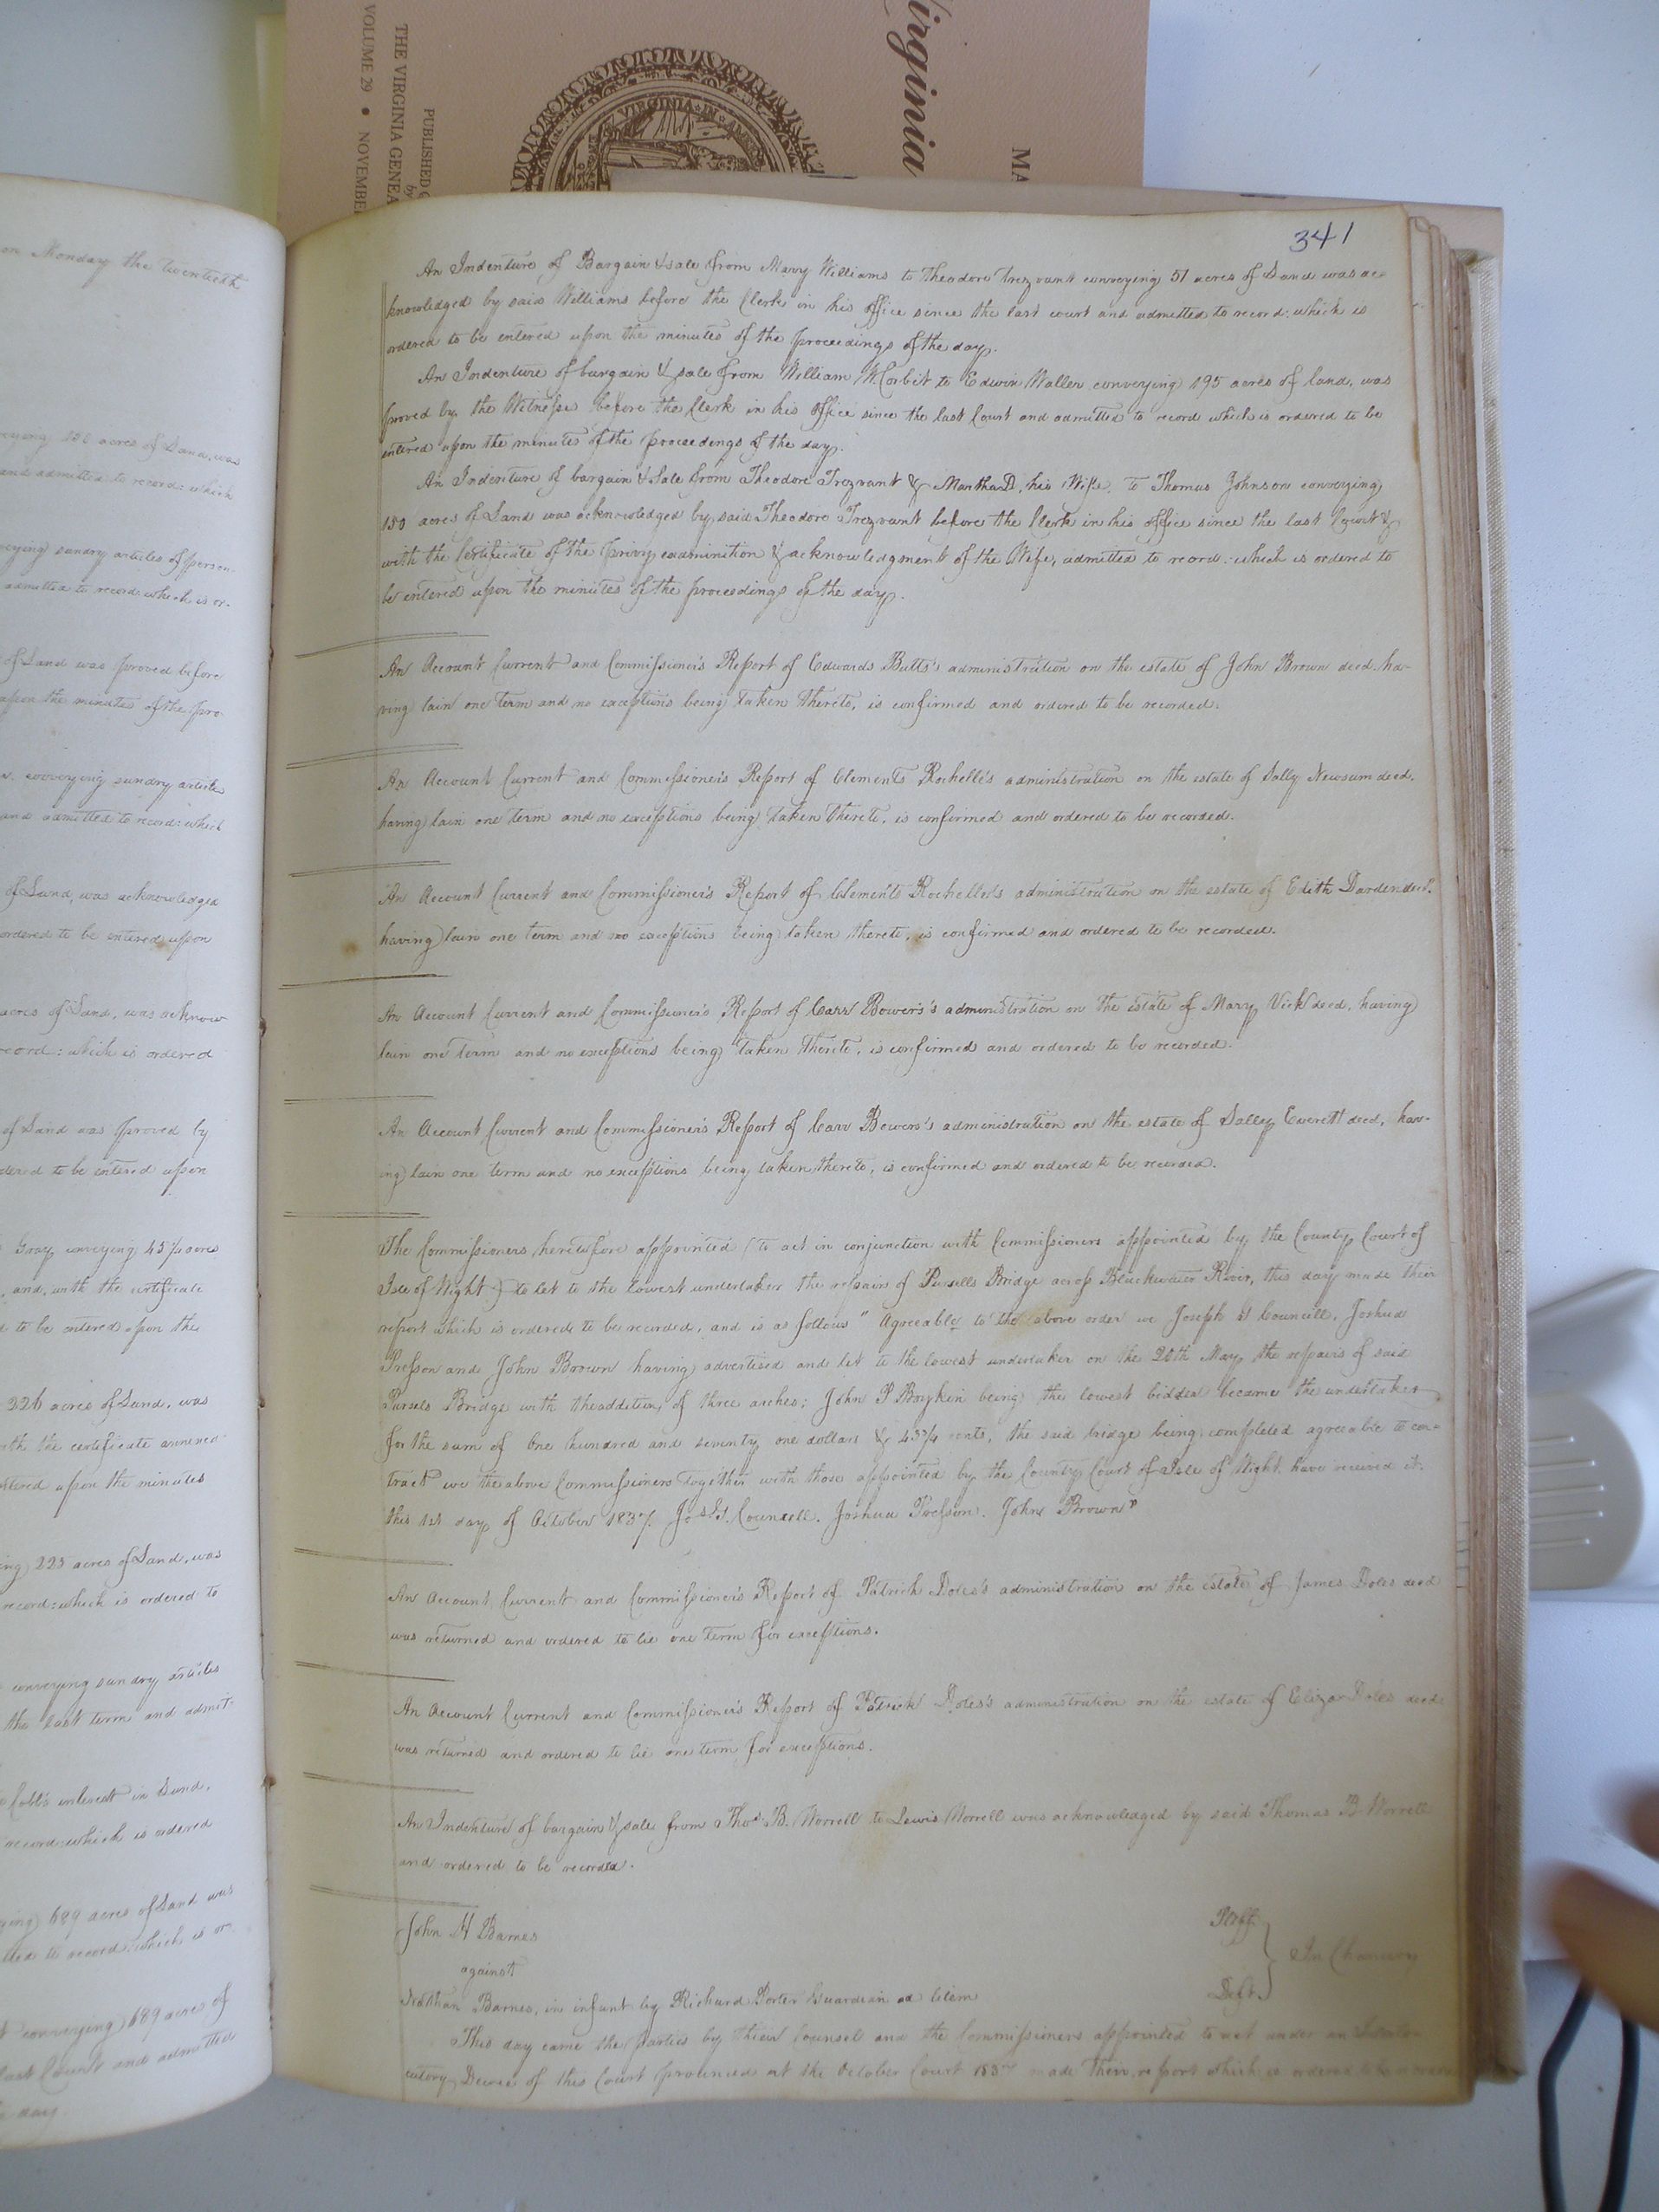 Virginia
MA
PUBLISHED
by
THE VIRGINIA GENEA
VOLUME 29 • NOVEMBE
VIRGINIA
on Monday the twentieth
veying 150 acres of Land, was
and admitted to record: which
veying sundry articles of person-
admitted to record: which is or-
of Land was proved before
upon the minutes of the pro-
conveying sundry article
and admitted to record: which
of Land, was acknowledged
ordered to be entered upon
acres of Land, was acknow
record: which is ordered
of Land was proved by
dered to be entered upon
Gray conveying 45¼ acres
and, with the certificate
to be entered upon the
226 acres of Land, was
with the certificate annexed
entered upon the minutes
ing 223 acres of Land, was
record: which is ordered to
conveying sundry articles
the last term and admit-
Cobb's interest in Land,
record: which is ordered
ying 689 acres of Land was
tted to record: which is or-
conveying 689 acre of
last Court and admitted
day
341
An Indenture of Bargain & sale from Mary Williams to Theodore Trezvant conveying 51 acres of Land was ac-
knowledged by said Williams before the Clerk in his office since the last court and admitted to record: which is
ordered to be entered upon the minutes of the proceedings of the day.
An Indenture of bargain & sale from William W. Corbit to Edwin Waller conveying 195 acres of land, was
proved by the Witnesses before the Clerk in his office since the last Court and admitted to record which is ordered to be
entered upon the minutes of the proceedings of the day.
An Indenture of bargain & Sale from Theodore Trezvant & Martha D. his Wife, to Thomas Johnson conveying
150 acres of Land was acknowledged by said Theodore Trezvant before the Clerk in his office since the last Court &
with the Certificate of the privy examinition & acknowledgment of the Wife, admitted to record: which is ordered to
be entered upon the minutes of the proceedings of the day.
An Account Current and Commissioner's Report of Edwards Butts's administration on the estate of John Brown decd. ha-
ving lain one term and no exceptions being taken thereto, is confirmed and ordered to be recorded.
An Account Current and Commissioner's Report of Clements Rochelle's administration on the estate of Sally Newsum decd.
having lain one term and no exceptions being taken thereto, is confirmed and ordered to be recorded.
An Account Current and Commissioner's Report of Clements Rochelle's administration on the estate of Edith Darden decd.
having lain one term and no exceptions being taken thereto, is confirmed and ordered to be recorded.
An Account Current and Commissioner's Report of Carr Bowers's administration on the estate of Mary Vick decd, having
lain one term and no exceptions being taken thereto, is confirmed and ordered to be recorded.
An Account Current and Commissioner's Report of Carr Bowers's administration on the estate of Salley Everett decd, hav-
ing lain one term and no exceptions being taken thereto, is confirmed and ordered to be recorded.
The Commissioners heretofore appointed (to act in conjunction with Commissioners appointed by the County Court of
Isle of Wight) to let to the lowest undertaker the repairs of Pursells Bridge across Blackwater River, this day made their
report which is ordered to be recorded, and is as follows "Agreeable to the above order we Joseph G Councill, Joshua
Presson and John Brown having advertised and let to the lowest undertaker on the 20th May the repairs of said
Pursels Bridge with the addition of three arches; John P Boykin being the lowest bidder became the undertaker
for the sum of One hundred and seventy one dollars & 43¾ cents, the said bridge being completed agreeable to con-
tract we the above Commissioners together with those appointed by the County Court of Isle of Wight have received it.
this 1st day of October 1837. Jos. G. Councill. Joshua Presson. John Brown"
An Account Current and Commissioner's Report of Patrick Doles's administration on the estate of James Doles decd
was returned and ordered to lie one term for exceptions.
An Account Current and Commissioner's Report of Patrick Doles's administration on the estate of Eliza Doles decd.
was returned and ordered to lie one term for exceptions.
An Indenture of bargain & sale from Thos. B. Worrell to Lewis Worrell was acknowledged by said Thomas B Worrell
and ordered to be recorded.
John H Barnes Pltff.
against In Chancery
Nathan Barnes, in infant by Richard Porter Guardian ad litem Deft.
This day came the parties by their Counsel and the Commissioners appointed to act under an Interlo-
cutory Decree of this Court pronounced at the October Court made their report which is ordered to be